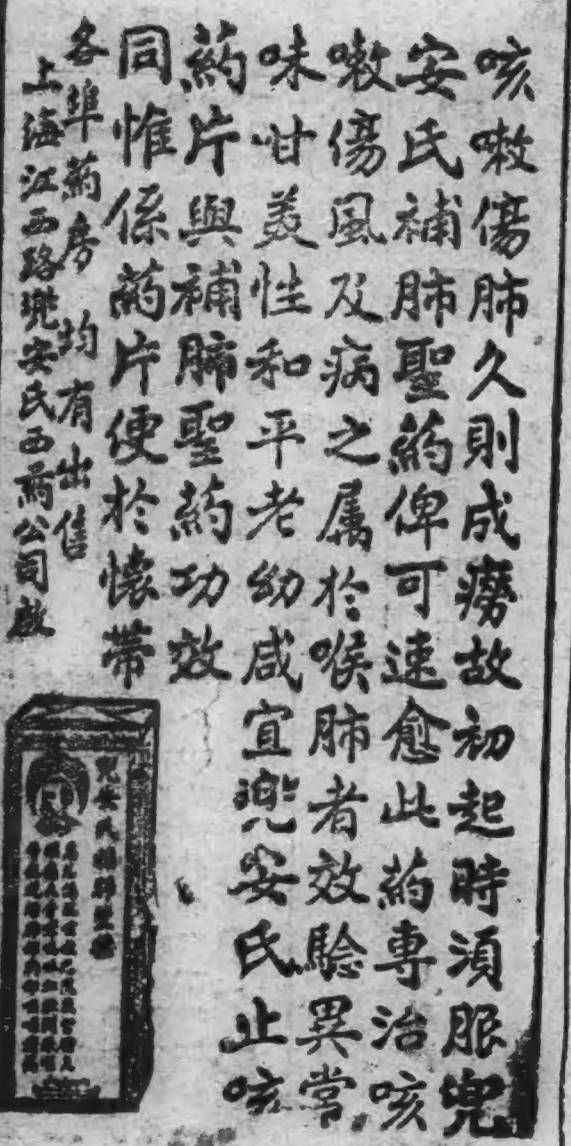 咳嗽傷肺久則成癆故初起時須服兜
安氏補肺聖藥俾可速愈此藥專治咳
嗽傷風及病之属於喉肺者效驗異常
味甘美性和平老幼咸宜兜安氏止咳
药片與補肺聖药功效
同惟係药片便於懐帶
各埠药房均有出售
上海江西路兜安氏西药公司啟
兜安氏補肺聖藥